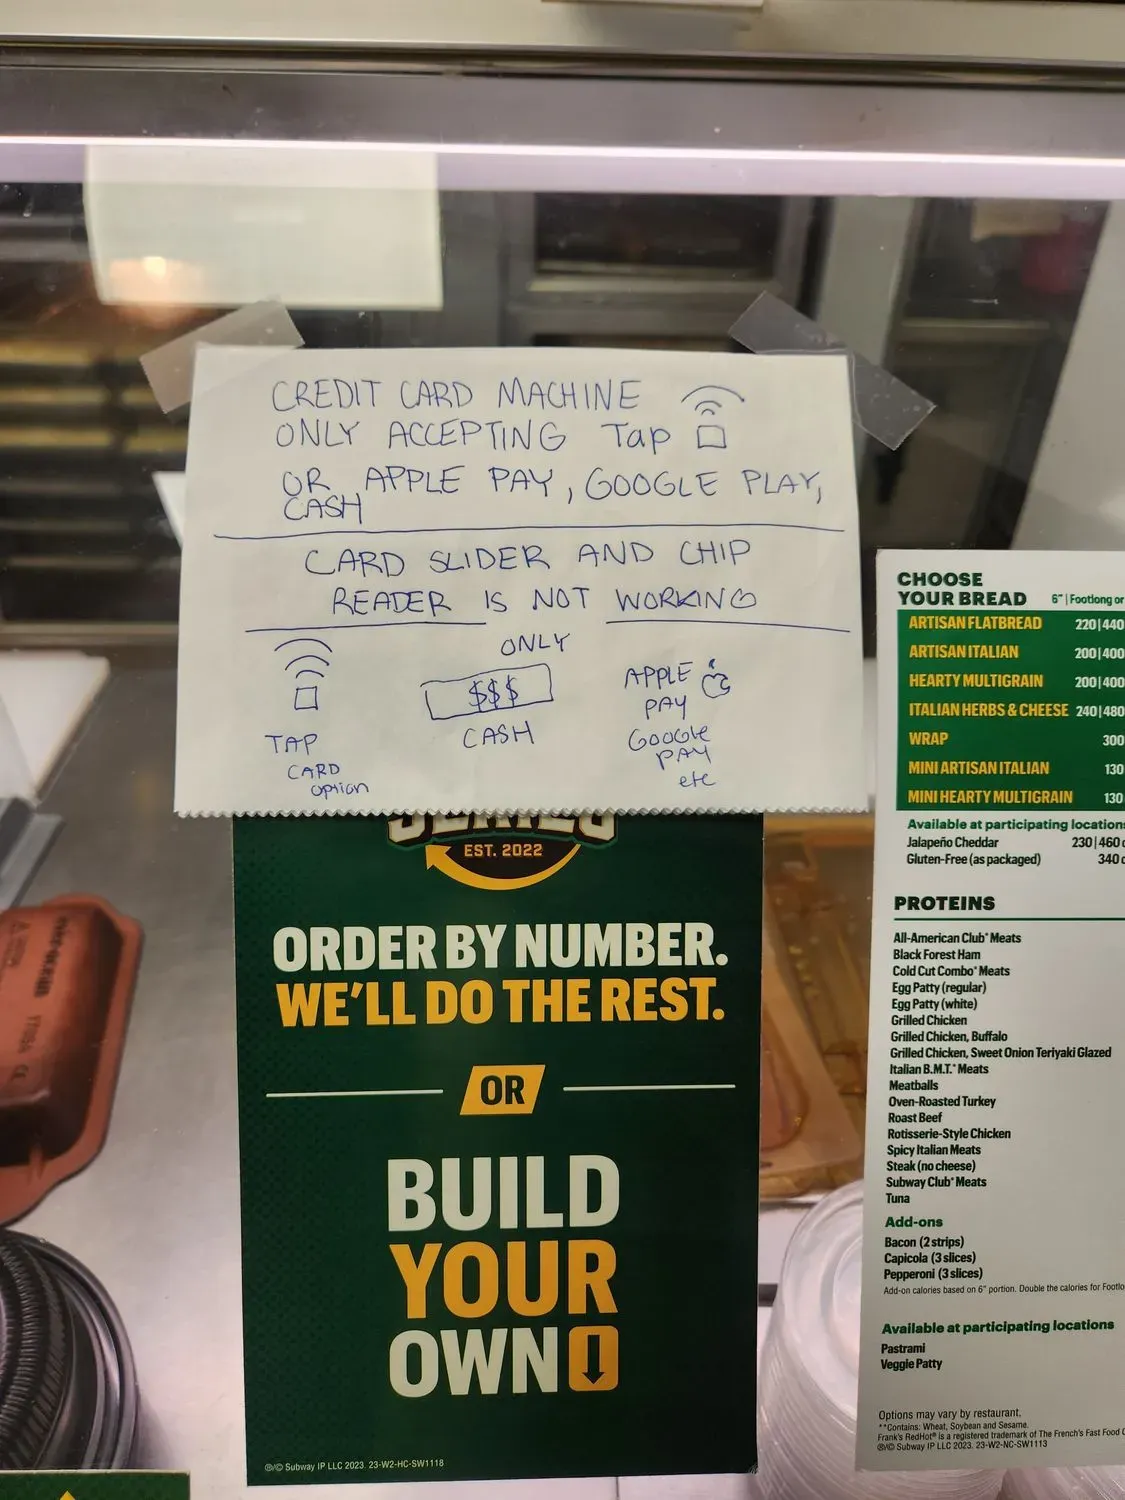 CREDIT CARD MACHINE
ONLY ACCEPTING Tap
OR APPLE PAY, GOOGLE PLAY,
CASH
CARD SLIDER AND CHIP
READER IS NOT WORKING
ONLY
TAP
CARD
option
$$$
CASH
APPLE
PAY
GOOGLE
PAY
etc
EST. 2022
ORDER BY NUMBER.
WE'LL DO THE REST.
OR
BUILD
YOUR
OWN
®/© Subway IP LLC 2023. 23-W2-HC-SW1118
CHOOSE
YOUR BREAD 6" | Footlong or
ARTISAN FLATBREAD 220|440
ARTISAN ITALIAN 200|400
HEARTY MULTIGRAIN 200|400
ITALIAN HERBS & CHEESE 240|480
WRAP 300
MINI ARTISAN ITALIAN 130
MINI HEARTY MULTIGRAIN 130
Available at participating locations
Jalapeño Cheddar 230|460
Gluten-Free (as packaged) 340
PROTEINS
All-American Club® Meats
Black Forest Ham
Cold Cut Combo® Meats
Egg Patty (regular)
Egg Patty (white)
Grilled Chicken
Grilled Chicken, Buffalo
Grilled Chicken, Sweet Onion Teriyaki Glazed
Italian B.M.T.® Meats
Meatballs
Oven-Roasted Turkey
Roast Beef
Rotisserie-Style Chicken
Spicy Italian Meats
Steak (no cheese)
Subway Club® Meats
Tuna
Add-ons
Bacon (2 strips)
Capicola (3 slices)
Pepperoni (3 slices)
Add-on calories based on 6" portion. Double the calories for Footlo
Available at participating locations
Pastrami
Veggie Patty
Options may vary by restaurant.
**Contains: Wheat, Soybean and Sesame.
Frank's RedHot® is a registered trademark of The French's Fast Food C
®/© Subway IP LLC 2023. 23-W2-NC-SW1113